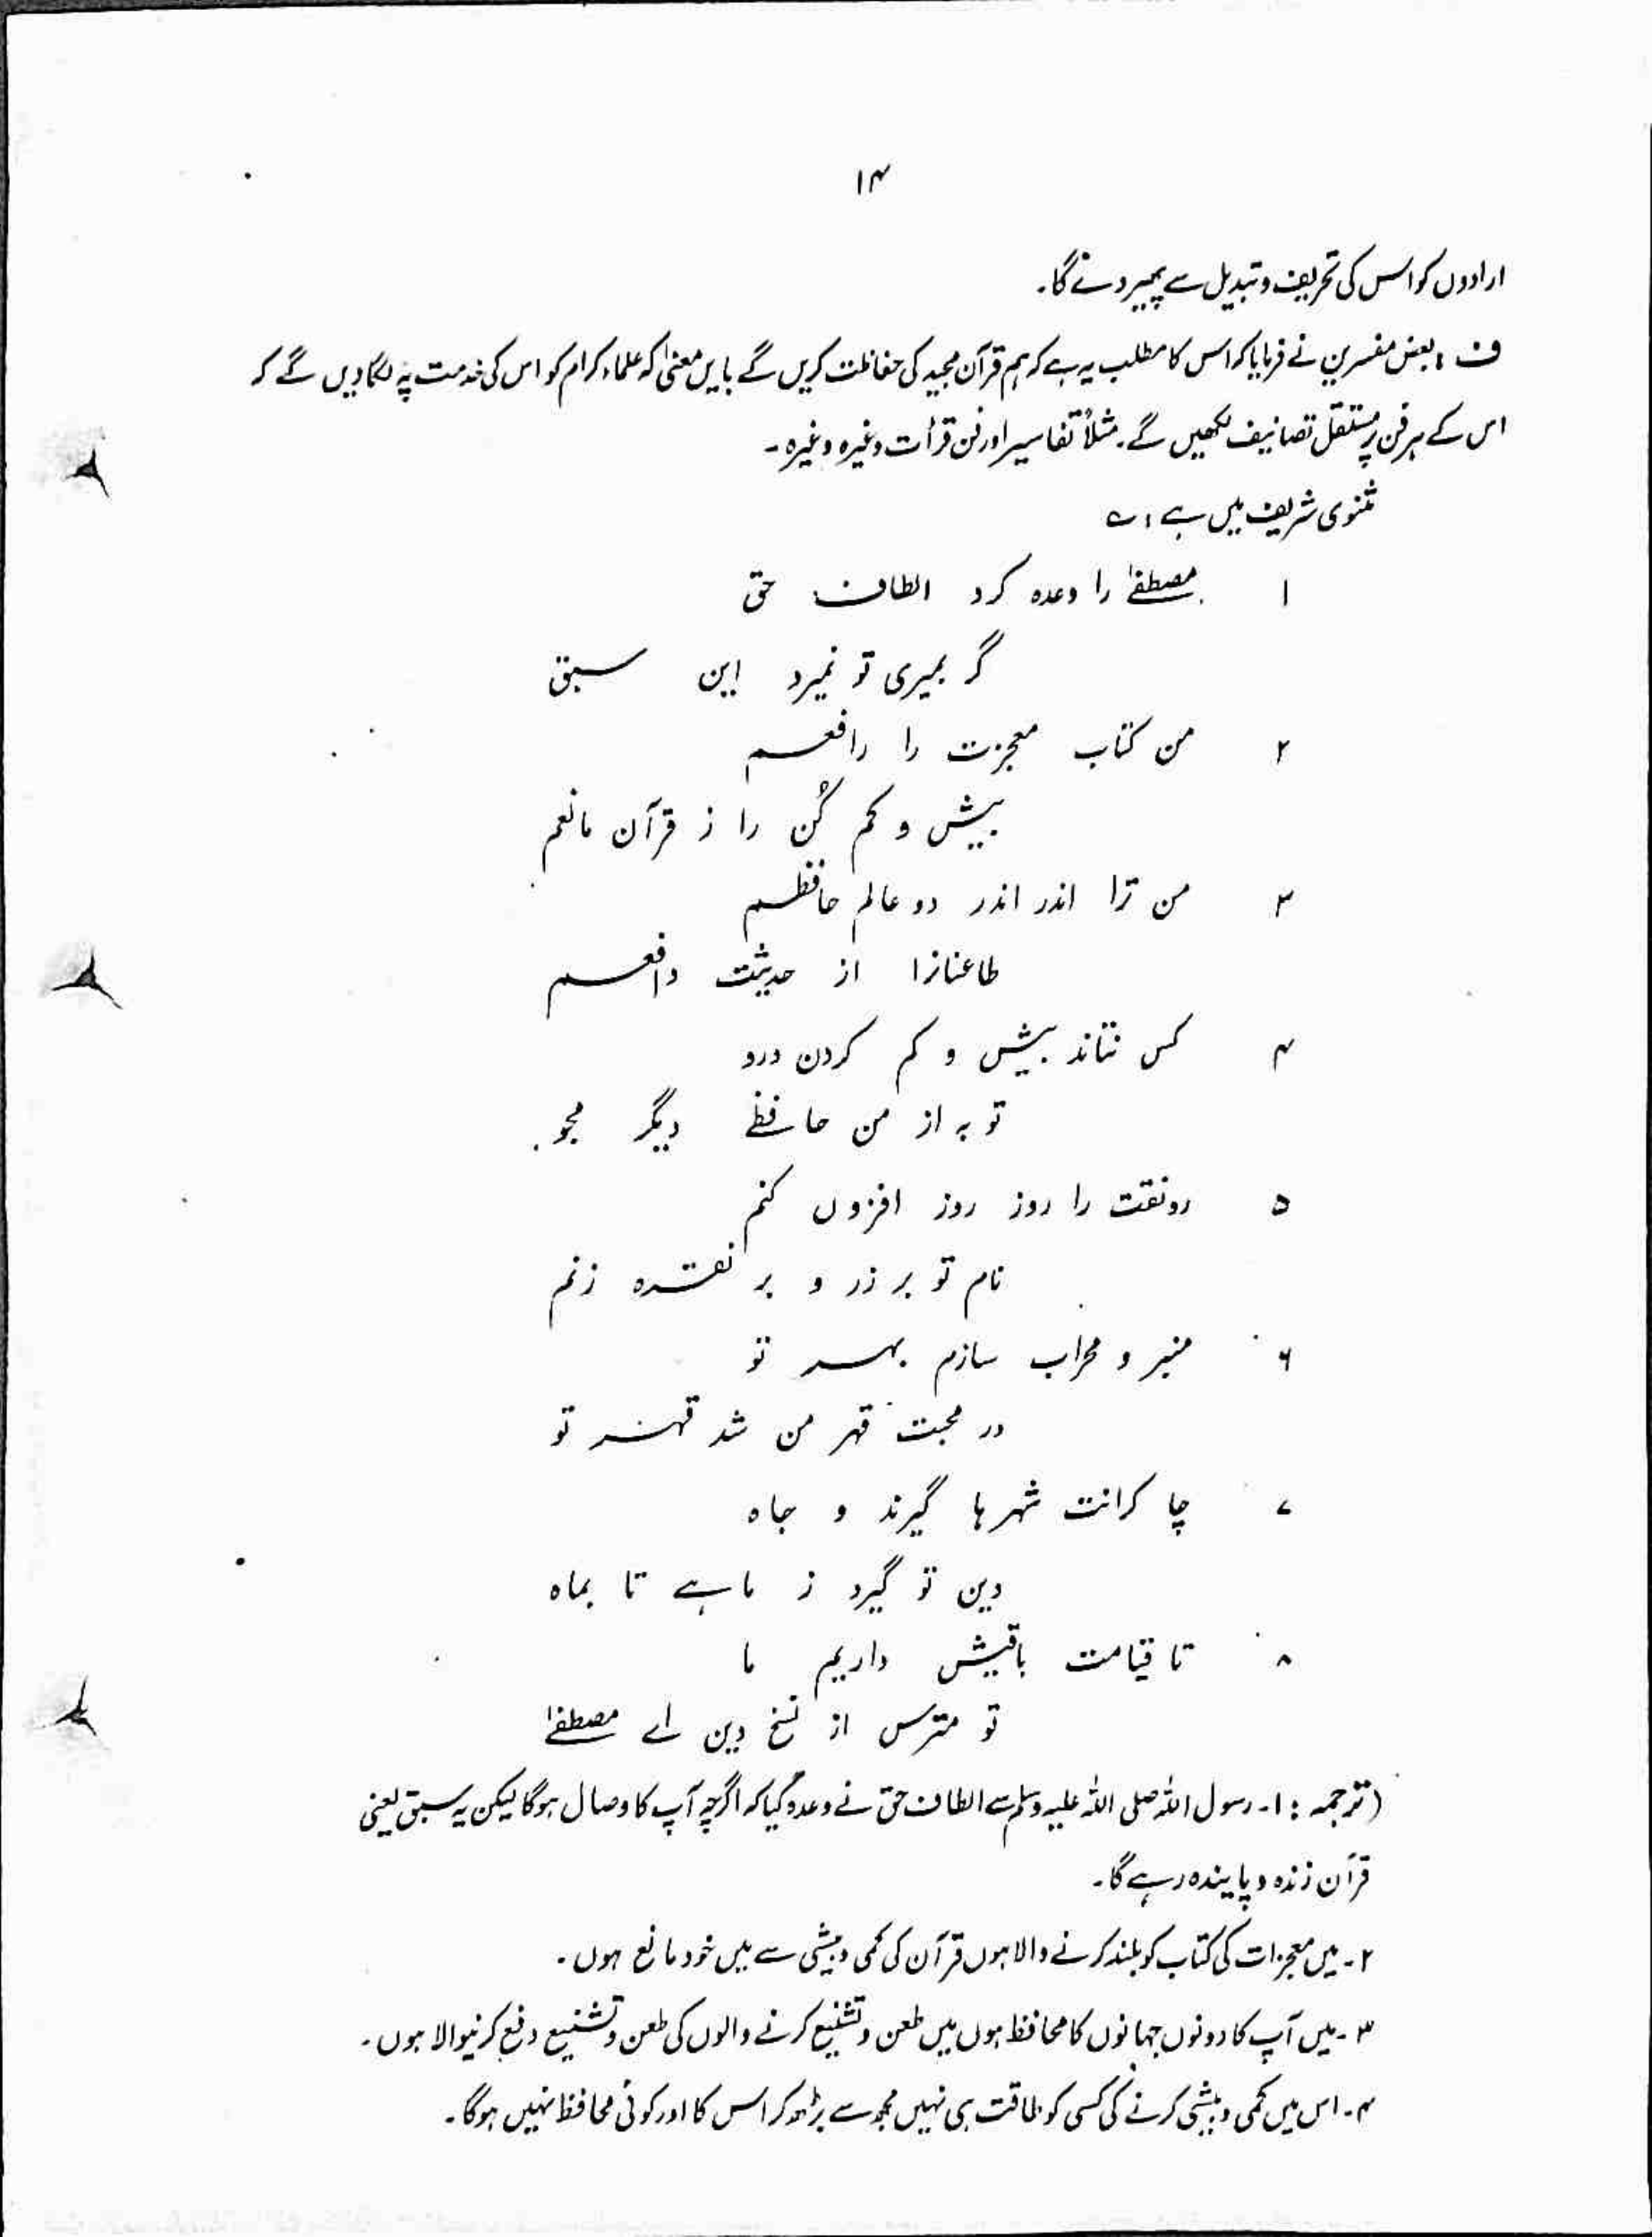 ۱۴
ارادوں کو اس کی تحریف و تبدیل سے پھیر دے گا۔
ف : بعض مفسرین نے فرمایا کہ اس کا مطلب یہ ہے کہ ہم قرآن مجید کی حفاظت کریں گے بایں معنیٰ کہ علماء کرام کو اس کی خدمت پہ لگا دیں گے کہ
اس کے ہر فن پر مستقل تصانیف لکھیں گے۔ مثلاً تفاسیر اور فن قرأت وغیرہ وغیرہ۔
مثنوی شریف میں ہے : ے
۱ مصطفےٰ را وعدہ کرد الطاف حق
گر بمیری تو نمیرد این سبق
۲ من کتاب معجزت را رافعم
بیش و کم کُن را ز قرآن مانعم
۳ من ترا اندر اندر دو عالم حافظم
طاعنانرا از حدیثت دافعم
۴ کس نتاند بیش و کم کردن درو
تو بہ از من حافظے دیگر مجو
۵ رونقت را روز روز افزوں کنم
نام تو بر زر و بر نقرہ زنم
۶ منبر و محراب سازم بہر تو
در محبت قہر من شد قہر تو
۷ چاکرانت شہرہا گیرند و جاہ
دین تو گیرد ز ماہے تا بماہ
۸ تا قیامت باقیش داریم ما
تو مترس از نسخ دین اے مصطفےٰ
(ترجمہ : ۱۔ رسول اللہ صلی اللہ علیہ وسلم سے الطاف حق نے وعدہ کیا کہ اگرچہ آپ کا وصال ہوگا لیکن یہ سبق یعنی
قرآن زندہ و پایندہ رہے گا۔
۲۔ میں معجزات کی کتاب کو بلند کرنے والا ہوں قرآن کی کمی و بیشی سے میں خود مانع ہوں۔
۳۔ میں آپ کا دونوں جہانوں کا محافظ ہوں میں طعن و تشنیع کرنے والوں کی طعن و تشنیع دفع کرنیوالا ہوں۔
۴۔ اس میں کمی و بیشی کرنے کی کسی کو طاقت ہی نہیں مجھ سے بڑھ کر اس کا اور کوئی محافظ نہیں ہوگا۔